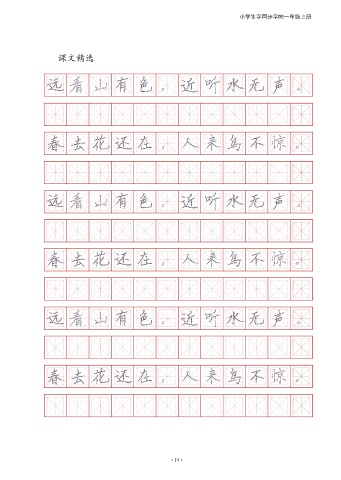 小学生字同步字帖一年级上册
课文精选
远看山有色，近听水无声。
春去花还在，人来鸟不惊。
远看山有色，近听水无声。
春去花还在，人来鸟不惊。
远看山有色，近听水无声。
春去花还在，人来鸟不惊。
· 19 ·